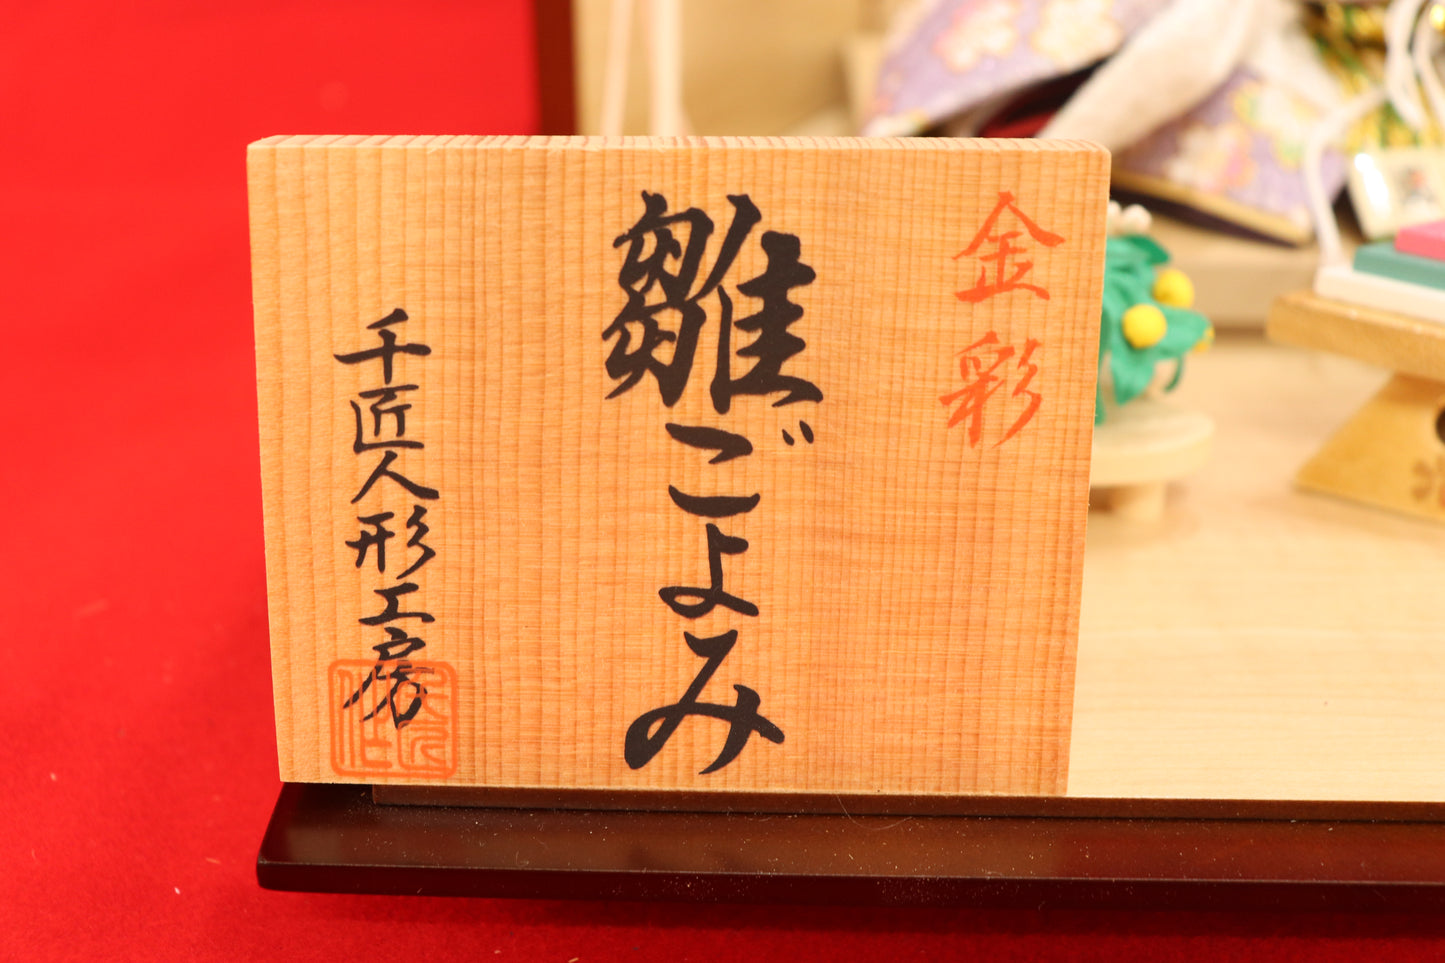 金彩
雛ごよみ
千匠人形工房